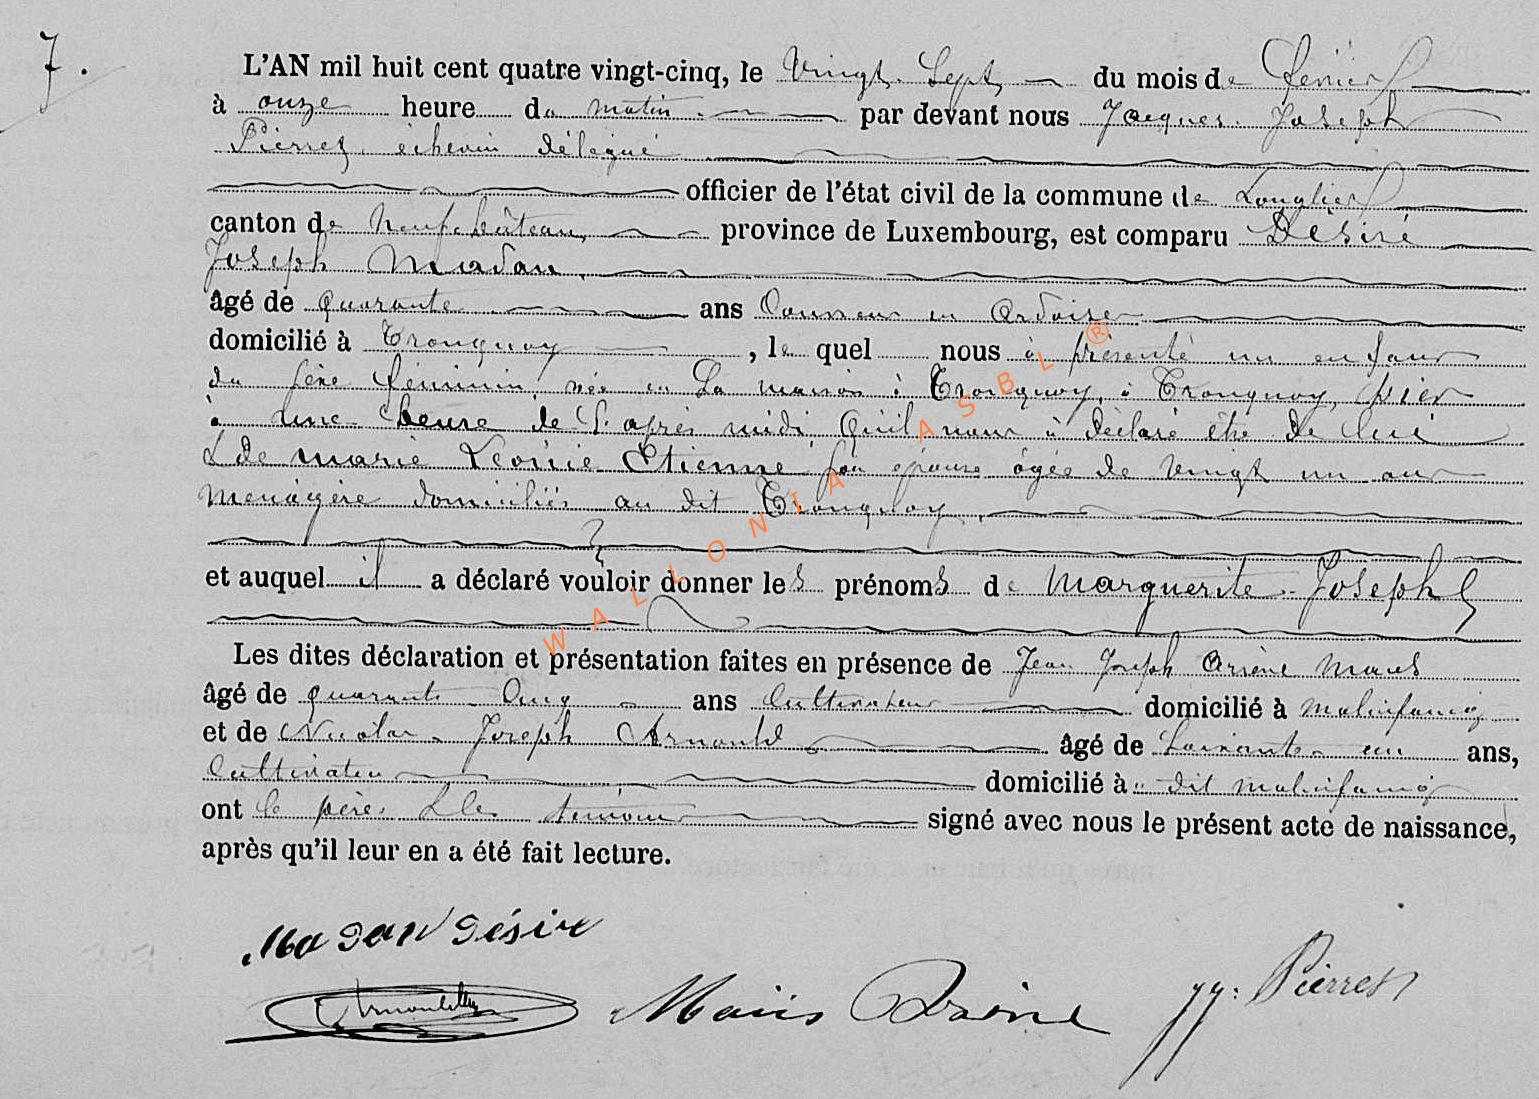 7.
L'AN mil huit cent quatre vingt-cinq, le vingt Sept du mois de
à onze heure du matin par devant nous Jacques Joseph
Pierret échevin délégué
officier de l'état civil de la commune de Longlier
canton de Neufchâteau, province de Luxembourg, est comparu Désiré
Joseph Madau
âgé de quarante ans en Ardoise
domicilié à Tronquoy, le quel nous à présenté un enfant
du sexe féminin née en la maison à Tronquoy, à Tronquoy, hier
à une heure de l'après midi qu'il nous à déclaré être de lui
& de marie Léonie Etienne son épouse âgée de vingt un ans
menagère domiciliés au dit Tronquoy,
et auquel il a déclaré vouloir donner les prénoms de Marguerite Joseph
Les dites déclaration et présentation faites en présence de Jean Joseph Arsène
âgé de quarante cinq ans Cultivateur domicilié à malinfaing
et de Nicolas Joseph Arnould âgé de Soixante un ans,
Cultivateur domicilié à dit malinfaing
ont le père & les témoins signé avec nous le présent acte de naissance,
après qu'il leur en a été fait lecture.
Madau Désiré
Arnould Arsène JJ. Pierret
WALLONIA ASBL ®